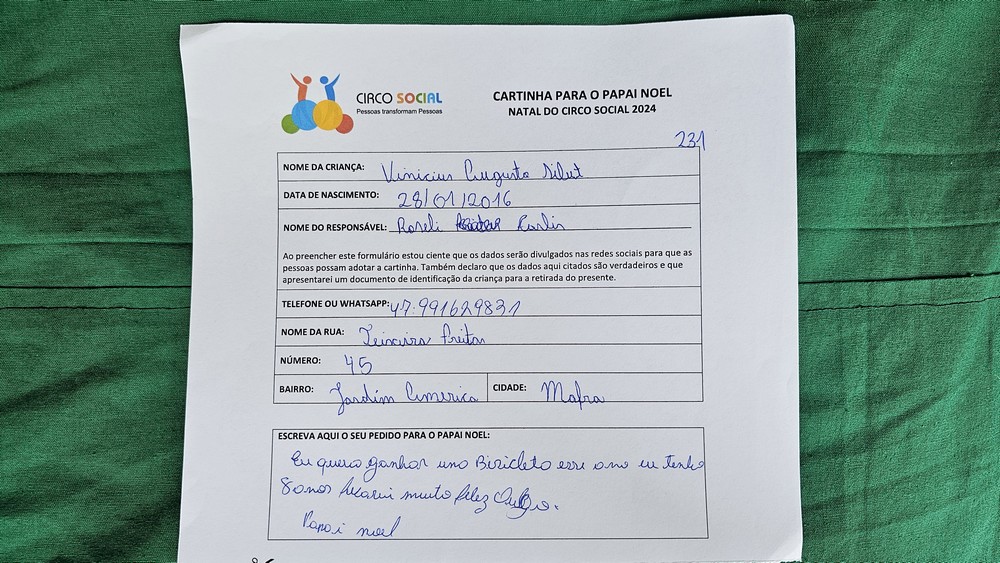 CIRCO SOCIAL
Pessoas transformam Pessoas
CARTINHA PARA O PAPAI NOEL
NATAL DO CIRCO SOCIAL 2024
231
NOME DA CRIANÇA: Vinicius Augusto
DATA DE NASCIMENTO: 28/01/2016
NOME DO RESPONSÁVEL: Roseli
Ao preencher este formulário estou ciente que os dados serão divulgados nas redes sociais para que as
pessoas possam adotar a cartinha. Também declaro que os dados aqui citados são verdadeiros e que
apresentarei um documento de identificação da criança para a retirada do presente.
TELEFONE OU WHATSAPP: 47.991629831
NOME DA RUA: Teixeira Freitas
NÚMERO: 45
BAIRRO: Jardim America CIDADE: Mafra
ESCREVA AQUI O SEU PEDIDO PARA O PAPAI NOEL:
Eu quero ganhar uno Bicicleta esse ano eu tenho
8 anos ficarei muito feliz
Papai noel